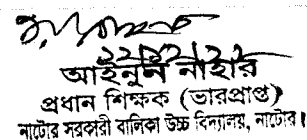 আইনুন নাহার
প্রধান শিক্ষক (ভারপ্রাপ্ত)
নাটোর সরকারী বালিকা উচ্চ বিদ্যালয়, নাটোর।